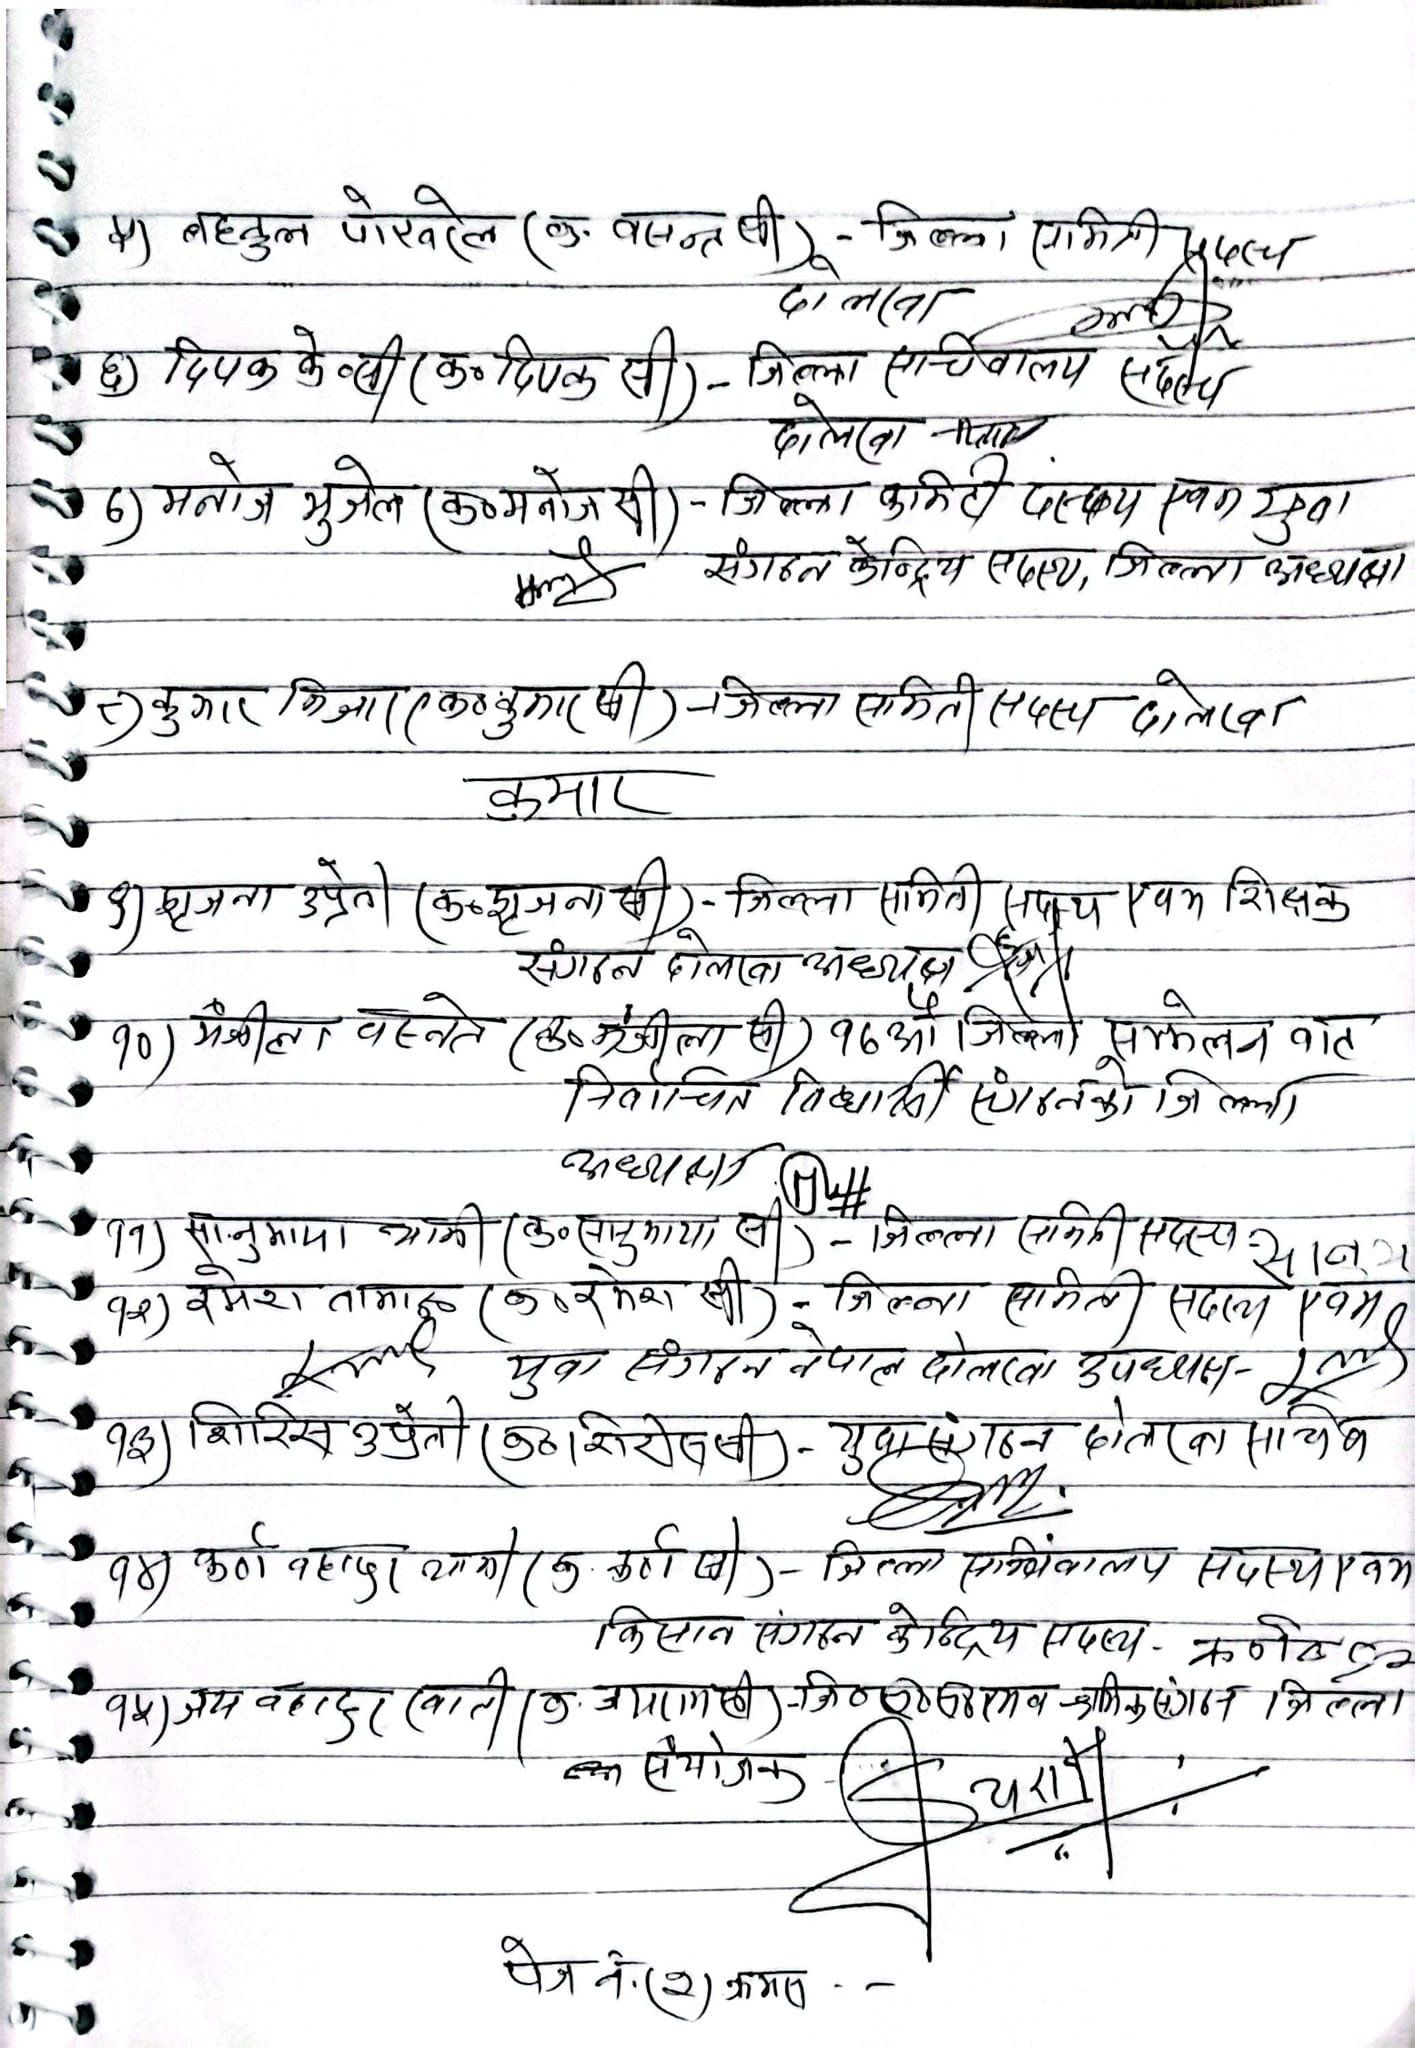 ५) पोखरेल (क. वसन्त सी) - जिल्ला समिती सदस्य
दोलखा
६) दिपक के०सी (क० दिपक सी) - जिल्ला सचिवालय सदस्य
दोलखा
७) मनोज भुजेल (क० मनोज सी) - जिल्ला कमिटी सदस्य एवम युवा
संगठन केन्द्रिय सदस्य, जिल्ला अध्यक्ष
८) कुमार (क० कुमार सी) - जिल्ला समिती सदस्य दोलखा
कुमार
९) सृजना उप्रेती (क० सृजना सी) - जिल्ला समिती सदस्य एवम शिक्षक
संगठन दोलखा अध्यक्ष
१०) वस्नेत सी) १७ औं जिल्ला सम्मेलन वाट
निर्वाचित विद्यार्थी संगठनको जिल्ला
अध्यक्ष
११) सानुमाया (क० सानुमाया सी) - जिल्ला समिती सदस्य
१२) रमेश तामाङ (क० रमेश सी) - जिल्ला समिती सदस्य एवम
युवा संगठन नेपाल दोलखा उपध्यक्ष -
१३) शिरिस उप्रेती सी) - युवा संगठन दोलखा सचिव
१४) कर्ण वहादुर (क. कर्ण सी) - जिल्ला सचिवालय सदस्य एवम
किसान संगठन केन्द्रिय सदस्य -
१५) जय वहादुर खाती (क. जयराम सी) - श्रमिक संगठन जिल्ला
संयोजक
पेज नं. (२) क्रमस . . -